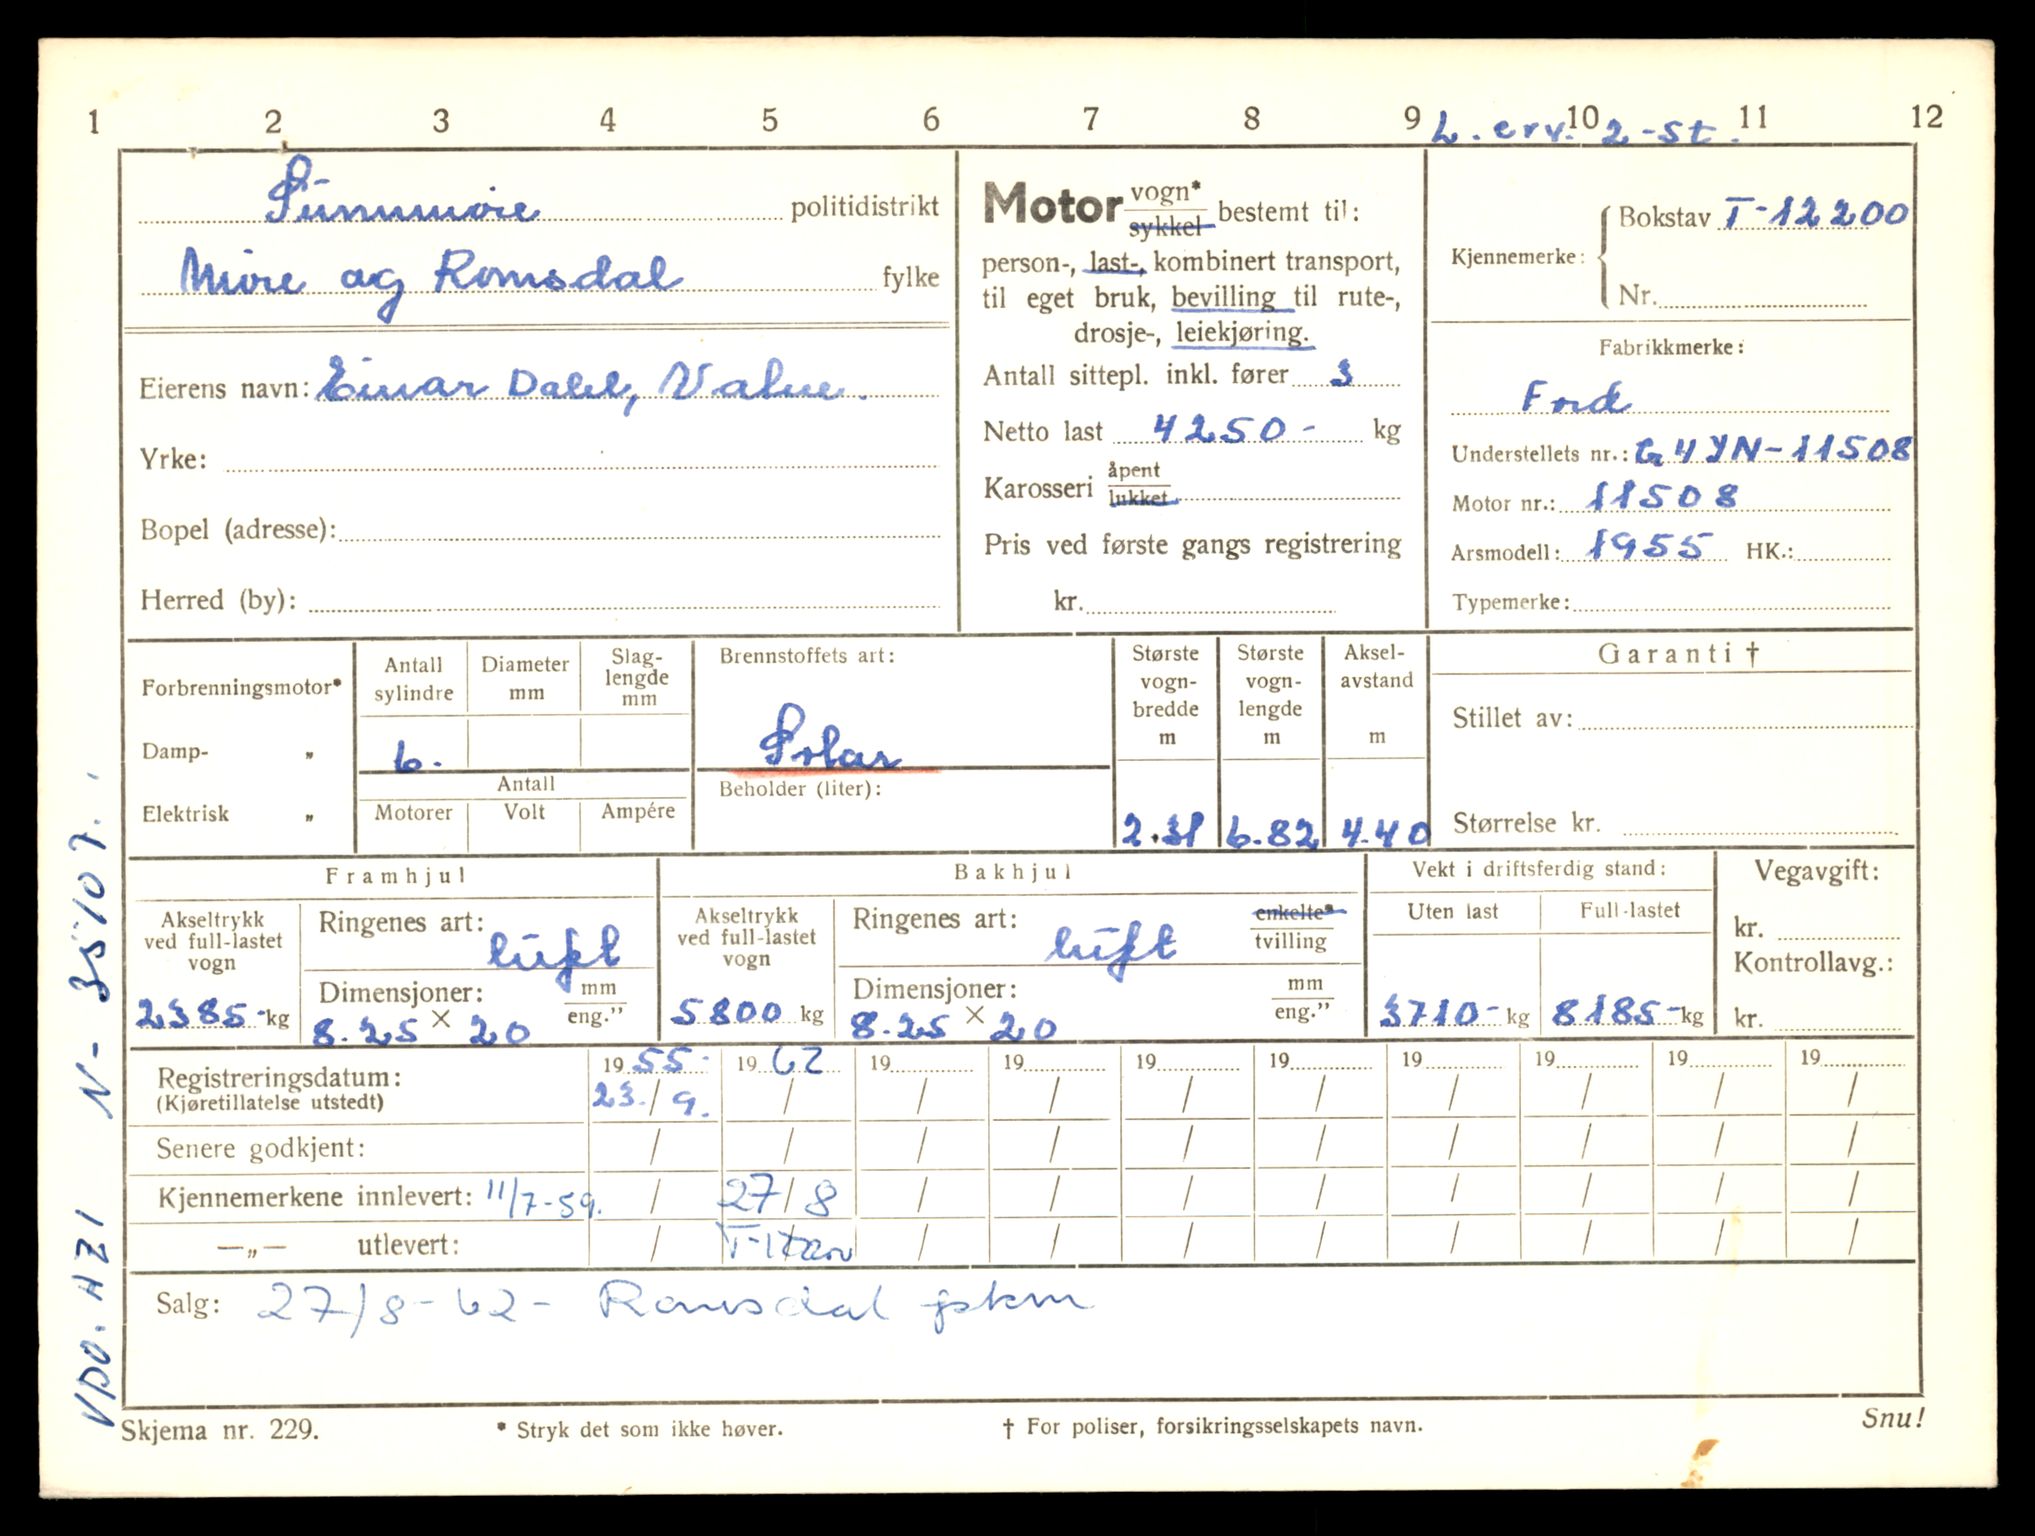 1 2 3 4 5 6 7 8 9 10 11 12
L. erv. 2-st.
Sunnmøre politidistrikt
Møre og Romsdal fylke
Eierens navn: Einar Dahl, Value.
Yrke:
Bopel (adresse):
Herred (by):
Motor vogn* bestemt til:
sykkel
person-, last-, kombinert transport,
til eget bruk, bevilling til rute-,
drosje-, leiekjøring.
Antall sittepl. inkl. fører 3
Netto last 4250- kg
Karosseri åpent
lukket
Pris ved første gangs registrering
kr.
Kjennemerke: Bokstav T-12200
Nr.
Fabrikkmerke:
Ford
Understellets nr.: G4YN-11508
Motor nr.: 11508
Arsmodell: 1955 HK.:
Typemerke:
Forbrenningsmotor*
Damp- „
Elektrisk „
Antall sylindre
Diameter mm
Slag-lengde mm
6.
Antall
Motorer Volt Ampére
Brennstoffets art:
Solar
Beholder (liter):
Største vogn-bredde m
2.31
Største vogn-lengde m
6.82
Aksel-avstand m
4.40
Garanti †
Stillet av:
Størrelse kr.
Framhjul
Akseltrykk ved full-lastet vogn
2385- kg
Ringenes art: luft
Dimensjoner: mm
eng."
8.25 × 20
Bakhjul
Akseltrykk ved full-lastet vogn
5800 kg
Ringenes art: luft
enkelte*
tvilling
Dimensjoner: mm
eng."
8.25 × 20
Vekt i driftsferdig stand:
Uten last Full-lastet
3710- kg 8185- kg
Vegavgift:
kr.
Kontrollavg.:
kr.
Registreringsdatum: 1955- 1962 19 19 19 19 19 19 19 19
(Kjøretillatelse utstedt) 23./9. / / / / / / / / /
Senere godkjent: / / / / / / / / / /
Kjennemerkene innlevert: 11/7-59. / 27/8 / / / / / / / /
—„— utlevert: / / / / / / / / /
Salg: 27/8-62- Romsdal pskm
Skjema nr. 229.
* Stryk det som ikke høver.
† For poliser, forsikringsselskapets navn.
Snu!
Vpo. HZ1 N- 35107.